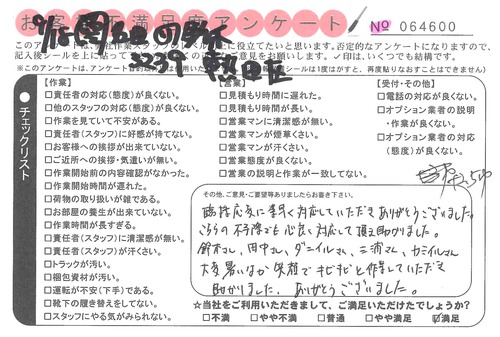 お客様不満足度アンケート
№ 064600
このアンケートは、
役立てたいと思います。否定的なアンケートになりますので、
お願いします。✓印は、いくつでも結構です。
【作業】
□責任者の対応(態度)が良くない。
□他のスタッフの対応(態度)が良くない。
□作業を見ていて不安がある。
□責任者(スタッフ)に好感が持てない。
□お客様への挨拶が出来ていない。
□ご近所への挨拶・気遣いが無い。
□作業開始前の内容確認がなかった。
□作業開始時間が遅れた。
□荷物の取り扱いが雑である。
□お部屋の養生が出来ていない。
□作業時間が長すぎる。
□責任者(スタッフ)に清潔感が無い。
□責任者(スタッフ)が汗くさい。
□トラックが汚い。
□梱包資材が汚い。
□運転が不安(下手)である。
□靴下の履き替えをしてない。
□スタッフにやる気がみられない。
●チェックリスト
【営業】
□見積もり時間に遅れた。
□見積もり時間が長い。
□営業マンに清潔感が無い。
□営業マンが煙草くさい。
□営業マンが汗くさい。
□営業態度が良くない。
□営業の説明と作業が一致してない。
【受付・その他】
□電話の対応が良くない。
□オプション業者の説明
・作業が良くない。
□オプション業者の対応
(態度)が良くない。
その他、ご意見・ご要望等ありましたらお書き下さい。
臨機応変に素早く対応していただきありがとうございました。
こちらの不手際にも心良く対応して頂き助かりました。
鈴木さん、田中さん、ダニイルさん、三浦さん、カミイルさん
大変暑いなか笑顔でキビキビと作業していただき
助かりました。ありがとうございます。
☆当社をご利用いただきまして、ご満足いただけたでしょうか?
□不満 □やや不満 □普通 □やや満足 ☑満足